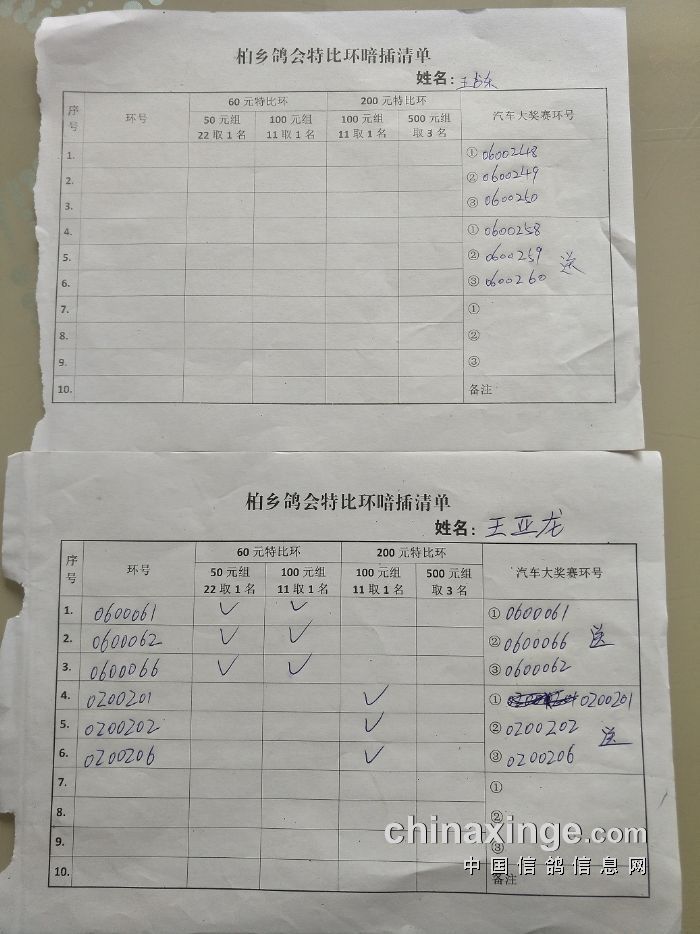 柏乡鸽会特比环暗插清单
姓名：王占东
序号 环号 60元特比环 200元特比环 汽车大奖赛环号
50元组 22取1名 100元组 11取1名 100元组 11取1名 500元组 取3名
1. ① 0600248
2. ② 0600249
3. ③ 0600250
4. ① 0600258
5. ② 0600259 送
6. ③ 0600260
7. ①
8. ②
9. ③
10. 备注
柏乡鸽会特比环暗插清单
姓名：王亚龙
序号 环号 60元特比环 200元特比环 汽车大奖赛环号
50元组 22取1名 100元组 11取1名 100元组 11取1名 500元组 取3名
1. 0600061 ✓ ✓ ① 0600061
2. 0600062 ✓ ✓ ② 0600066 送
3. 0600066 ✓ ✓ ③ 0600062
4. 0200201 ✓ ① 0200201
5. 0200202 ✓ ② 0200202 送
6. 0200206 ✓ ③ 0200206
7. ①
8. ②
9. ③
10. 备注
chinaxinge.com
中国信鸽信息网